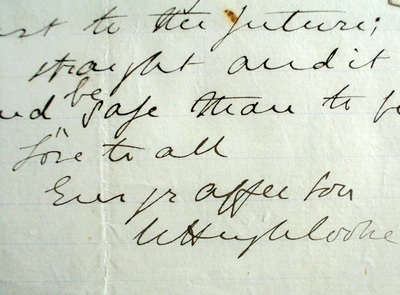 to the future;
straight and it
be
safe than to
Love to all
Ever yr affec son